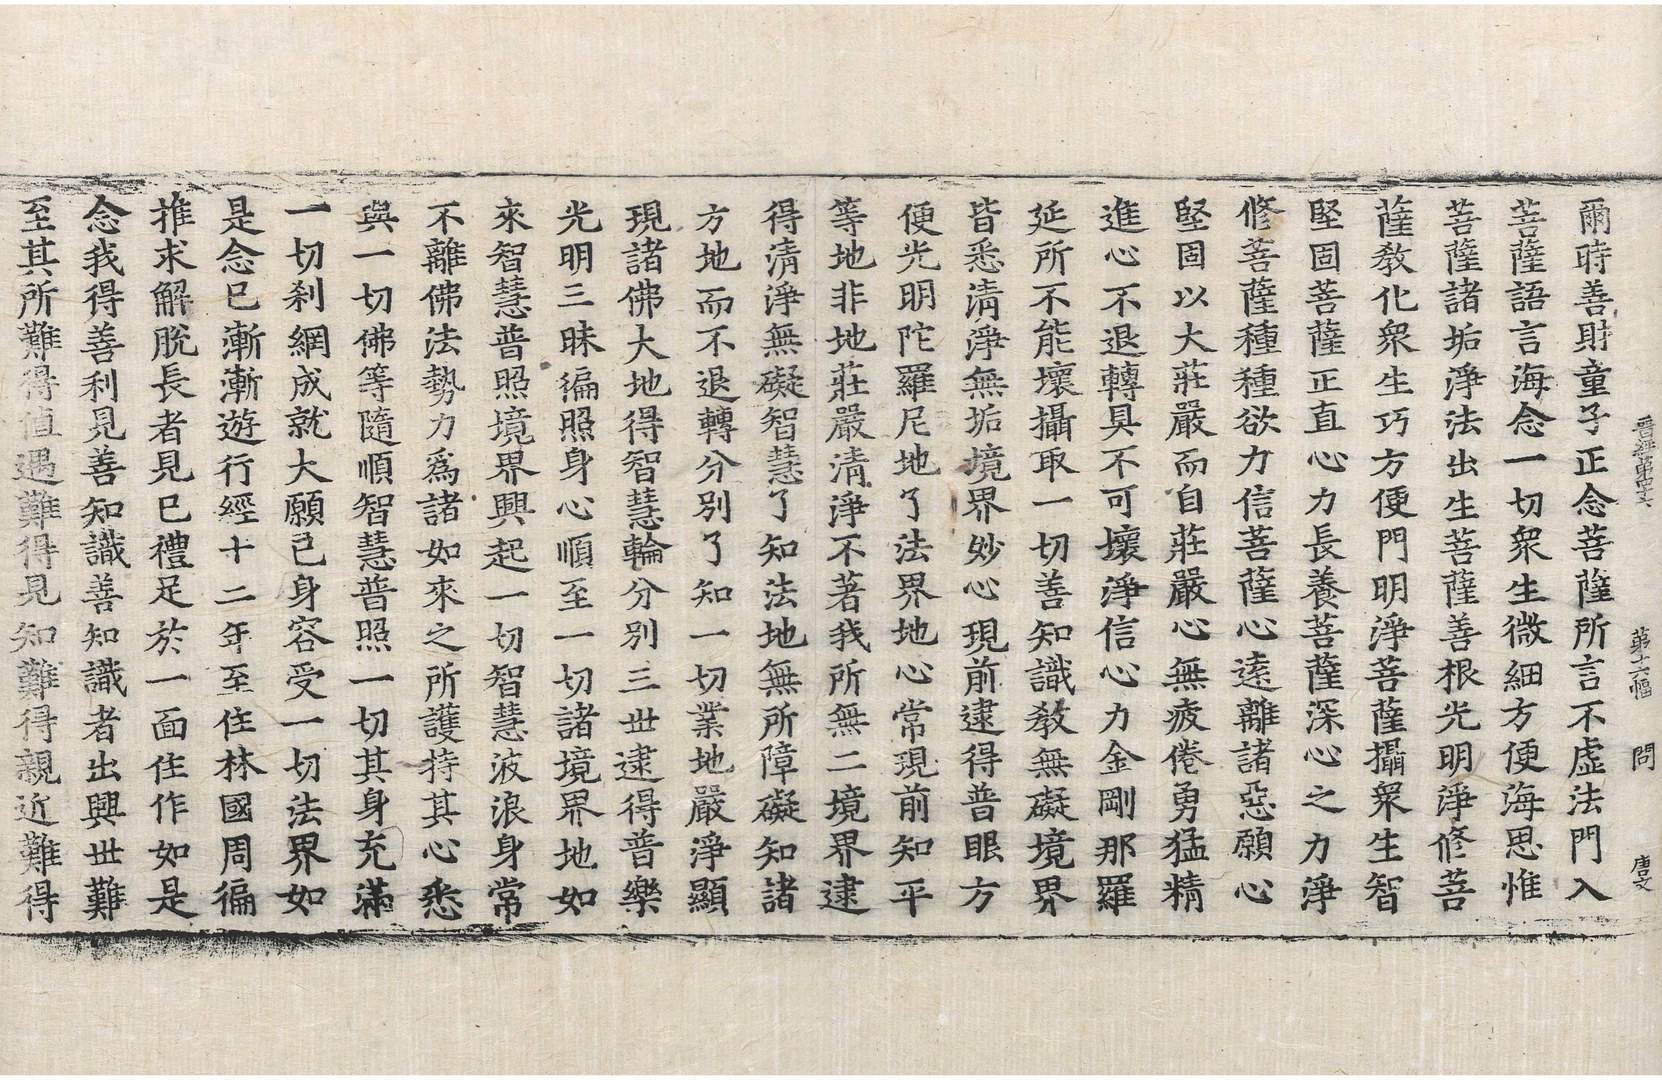 晋經第四十六 第十六幅 問 唐文
爾時善財童子正念菩薩所言不虛法門入
菩薩語言海念一切衆生微細方便海思惟
菩薩諸垢淨法出生菩薩善根光明淨修菩
薩教化衆生巧方便門明淨菩薩攝衆生智
堅固菩薩正直心力長養菩薩深心之力淨
修菩薩種種欲力信菩薩心遠離諸惡願心
堅固以大莊嚴而自莊嚴心無疲倦勇猛精
進心不退轉具不可壞淨信心力金剛那羅
延所不能壞攝取一切善知識教無礙境界
皆悉清淨無垢境界妙心現前逮得普眼方
便光明陀羅尼地了法界地心常現前知平
等地非地莊嚴清淨不著我所無二境界逮
得清淨無礙智慧了知法地無所障礙知諸
方地而不退轉分別了知一切業地嚴淨顯
現諸佛大地得智慧輪分別三世逮得普樂
光明三昧徧照身心順至一切諸境界地如
來智慧普照境界興起一切智慧波浪身常
不離佛法勢力爲諸如來之所護持其心悉
與一切佛等隨順智慧普照一切其身充滿
一切刹網成就大願己身容受一切法界如
是念已漸漸遊行經十二年至住林國周徧
推求解脫長者見已禮足於一面住作如是
念我得善利見善知識善知識者出興世難
至其所難得值遇難得見知難得親近難得